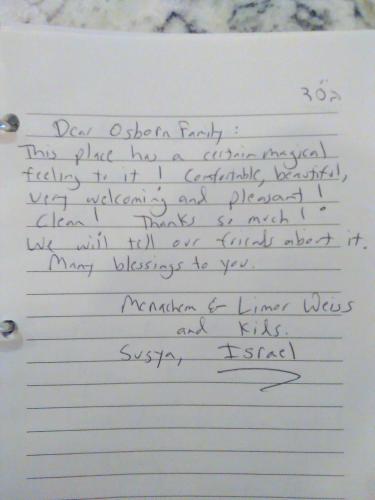 בס"ד
Dear Osborn Family:
This place has a certain magical
feeling to it! Comfortable, beautiful,
very welcoming and pleasant!
Clean! Thanks so much!
We will tell our friends about it.
Many blessings to you.
Menachem & Limor Weiss
and Kids.
Susya, Israel